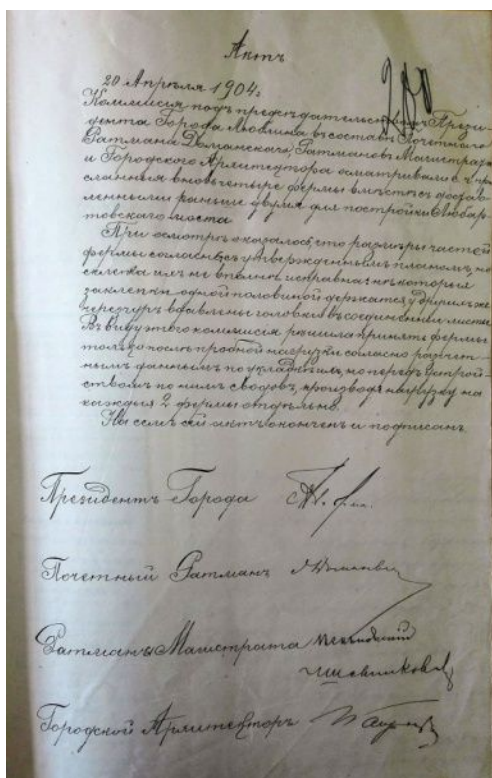 Актъ
20 Апрѣля 1904 г.
Коммисія подъ предсѣдательствомъ Прези-
дента Города Люблина въ составѣ Почетнаго
Ратмана Доманскаго, Ратмановъ Магистрата
и Городского Архитектора осматривали с. ч. при-
сланныя вновь четыре фермы вмѣстѣ съ достав-
ленными раньше двумя для постройки Любар-
товскаго моста.
При осмотрѣ оказалось, что размѣры частей
фермы согласны съ утвержденнымъ планомъ, но
склепка ихъ не вполнѣ исправна: нѣкоторыя
заклепки одной половиной держатся, у другихъ же
черезчуръ вдавлены головки въ соединеніи листа.
Въ виду этого коммисія рѣшила принять фермы
только послѣ пробной нагрузки согласно расчет-
нымъ даннымъ по укладкѣ ихъ, но передъ устрой-
ствомъ по нимъ сводовъ, производя нагрузку на
каждыя 2 фермы отдѣльно.
На семъ сей актъ оконченъ и подписанъ.
Президентъ Города
Почетный Ратманъ
Ратманы Магистрата
Городской Архитекторъ